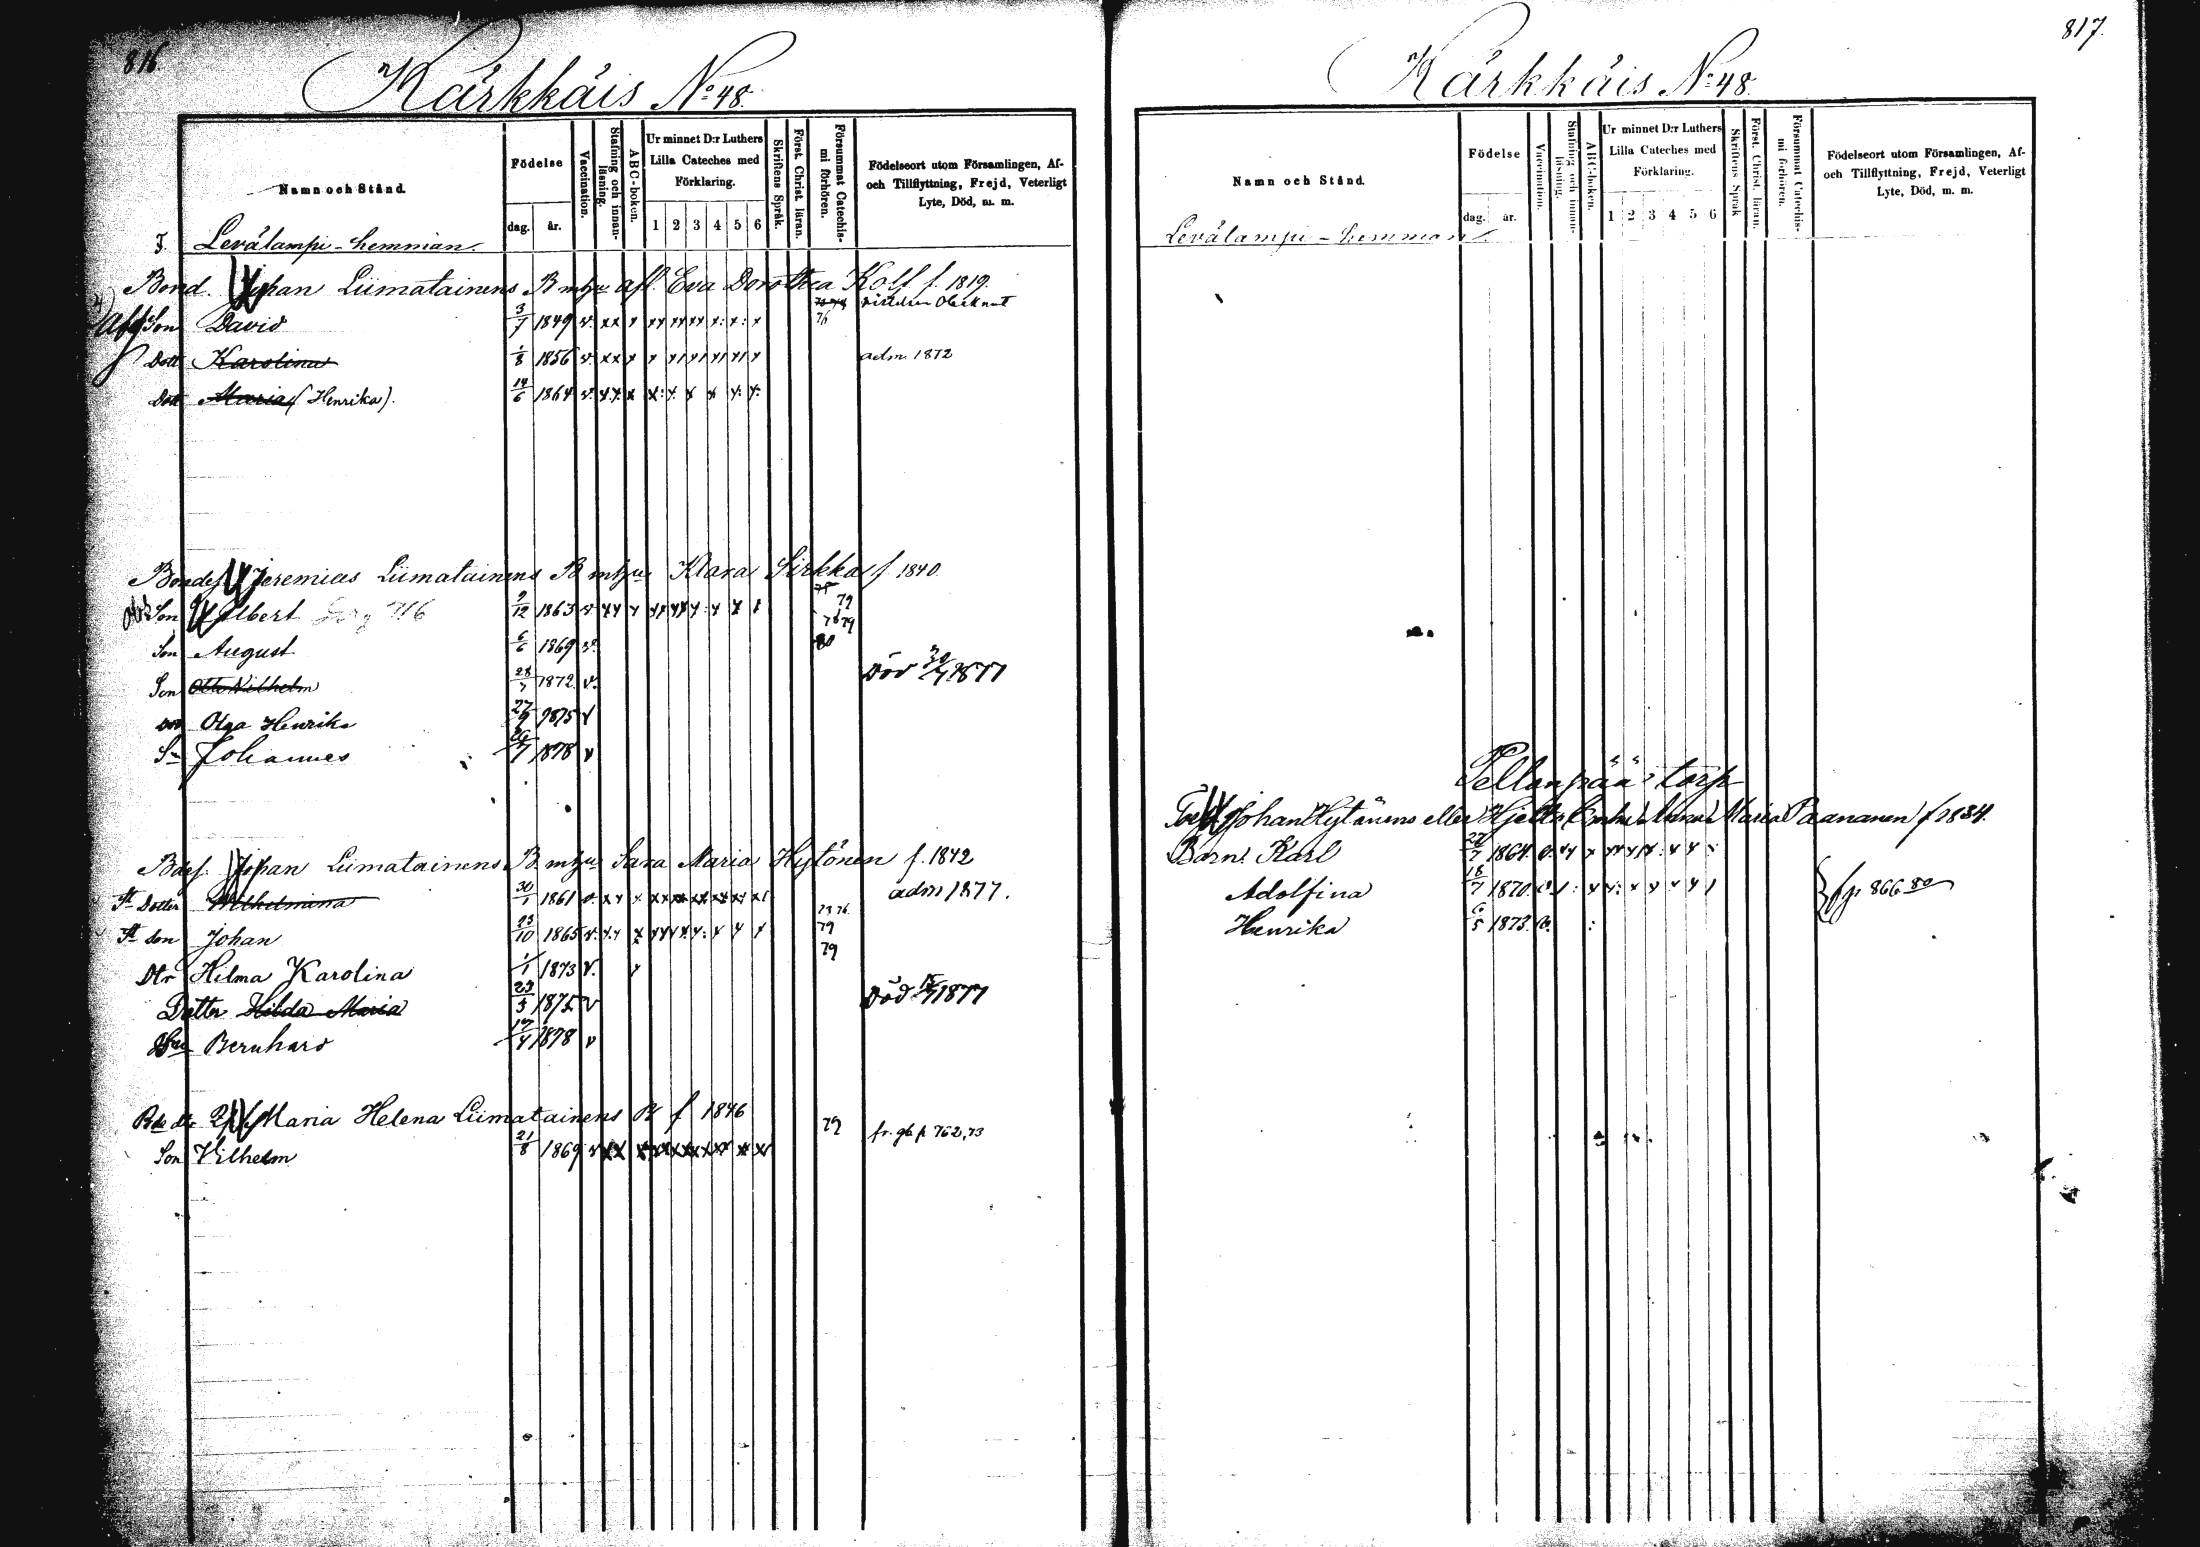 816.
Kärkkäis No 48.
Namn och Stånd.
Födelse
dag.
år.
Vaccination.
Stafning och innan-läsning.
ABC-boken.
Ur minnet D:r Luthers
Lilla Cateches med
Förklaring.
1 2 3 4 5 6
Skriftens Språk.
Först. Christ. läran.
Försummat Catechis-mi förhören.
Födelseort utom Församlingen, Af-
och Tillflyttning, Frejd, Veterligt
Lyte, Död, m. m.
Levälampi-hemman.
Bond. Johan Liimatainens B mhu afl. Eva Dorothea Kolf f. 1819.
Son David 3/7 1849 v. 76
Dott Karolina 1/8 1856 v. adm. 1872
Dott Maria (Henrika). 14/6 1864 v.
Bondes. Jeremias Liimatainens B mhu Klara Sirkka f 1840.
Son Albert 9/12 1863 v. 79
Son August 6/6 1869 v. 80
Son Otto Vilhelm 28/7 1872. v. Död 30/7 1877
Olga Henrika 27/9 1875 v
Sn Johannes 26/7 1878 v
Bdes. Johan Liimatainens B. mhu Sara Maria Hytönen f. 1842
Dotter Wilhelmina 30/1 1861 adm 1877.
Son Johan 23/10 1865 v. 79
Dtr Hilma Karolina 1/1 1873 v. 79
Dotter Hilda Maria 23/3 1875 v Död 1877
Bernhard 17/4 1878 v
Maria Helena Liimatainens B f 1846
Son Vilhelm 21/8 1869 v 79 fr. gb p. 762,73
817.
Kärkkäis No 48.
Namn och Stånd.
Födelse
dag.
år.
Vaccination.
Stafning och innan-läsning.
ABC-boken.
Ur minnet D:r Luthers
Lilla Cateches med
Förklaring.
1 2 3 4 5 6
Skriftens Språk
Först. Christ. läran.
Försummat Catechis-mi förhören.
Födelseort utom Församlingen, Af-
och Tillflyttning, Frejd, Veterligt
Lyte, Död, m. m.
Levälampi-hemman.
Pellonpää torp
Johan Hytönens eller Hjelts Enka Anna Maria Paananen f 1834.
Barn: Karl 1864.
Adolfina 18/7 1870. p. 866 80
Henrika 6/5 1873.